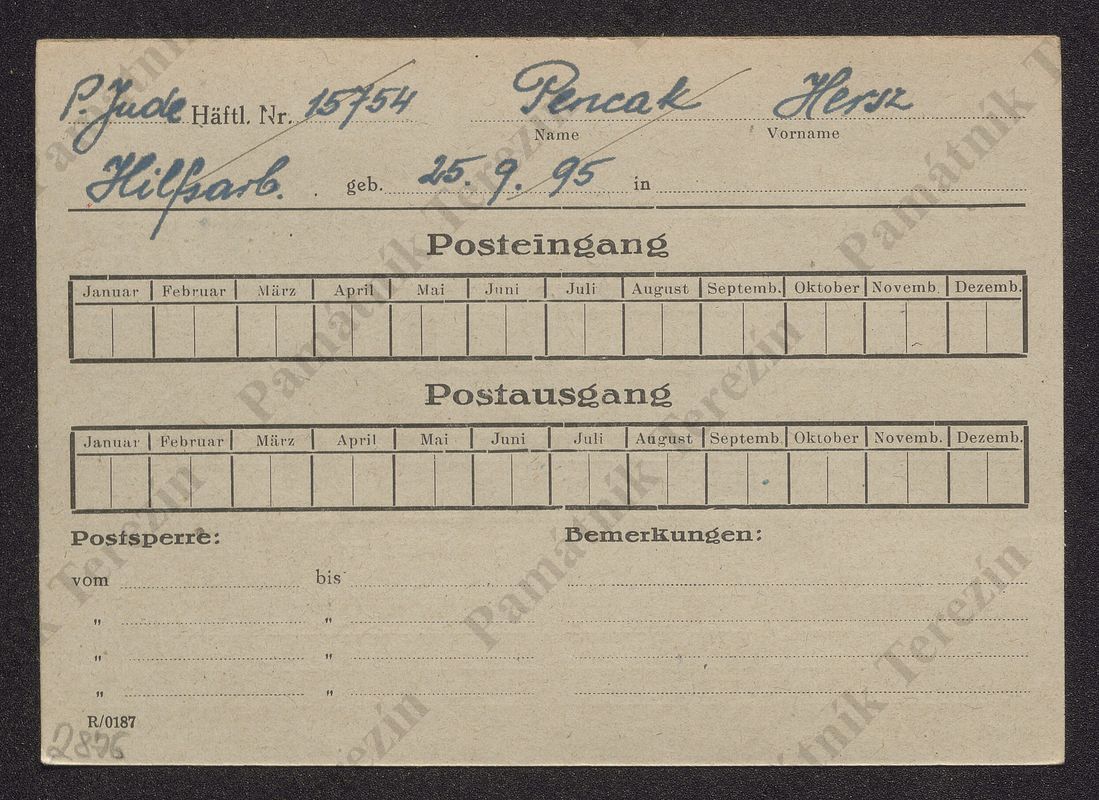 P. Jude Häftl. Nr. 15754 Pencak Hersz
Name Vorname
Hilfsarb. geb. 25. 9. 95 in
Posteingang
Januar Februar März April Mai Juni Juli August Septemb. Oktober Novemb. Dezemb.
Postausgang
Januar Februar März April Mai Juni Juli August Septemb. Oktober Novemb. Dezemb.
Postsperre: Bemerkungen:
vom bis
" "
" "
" "
R/0187
2876
Památník Terezín